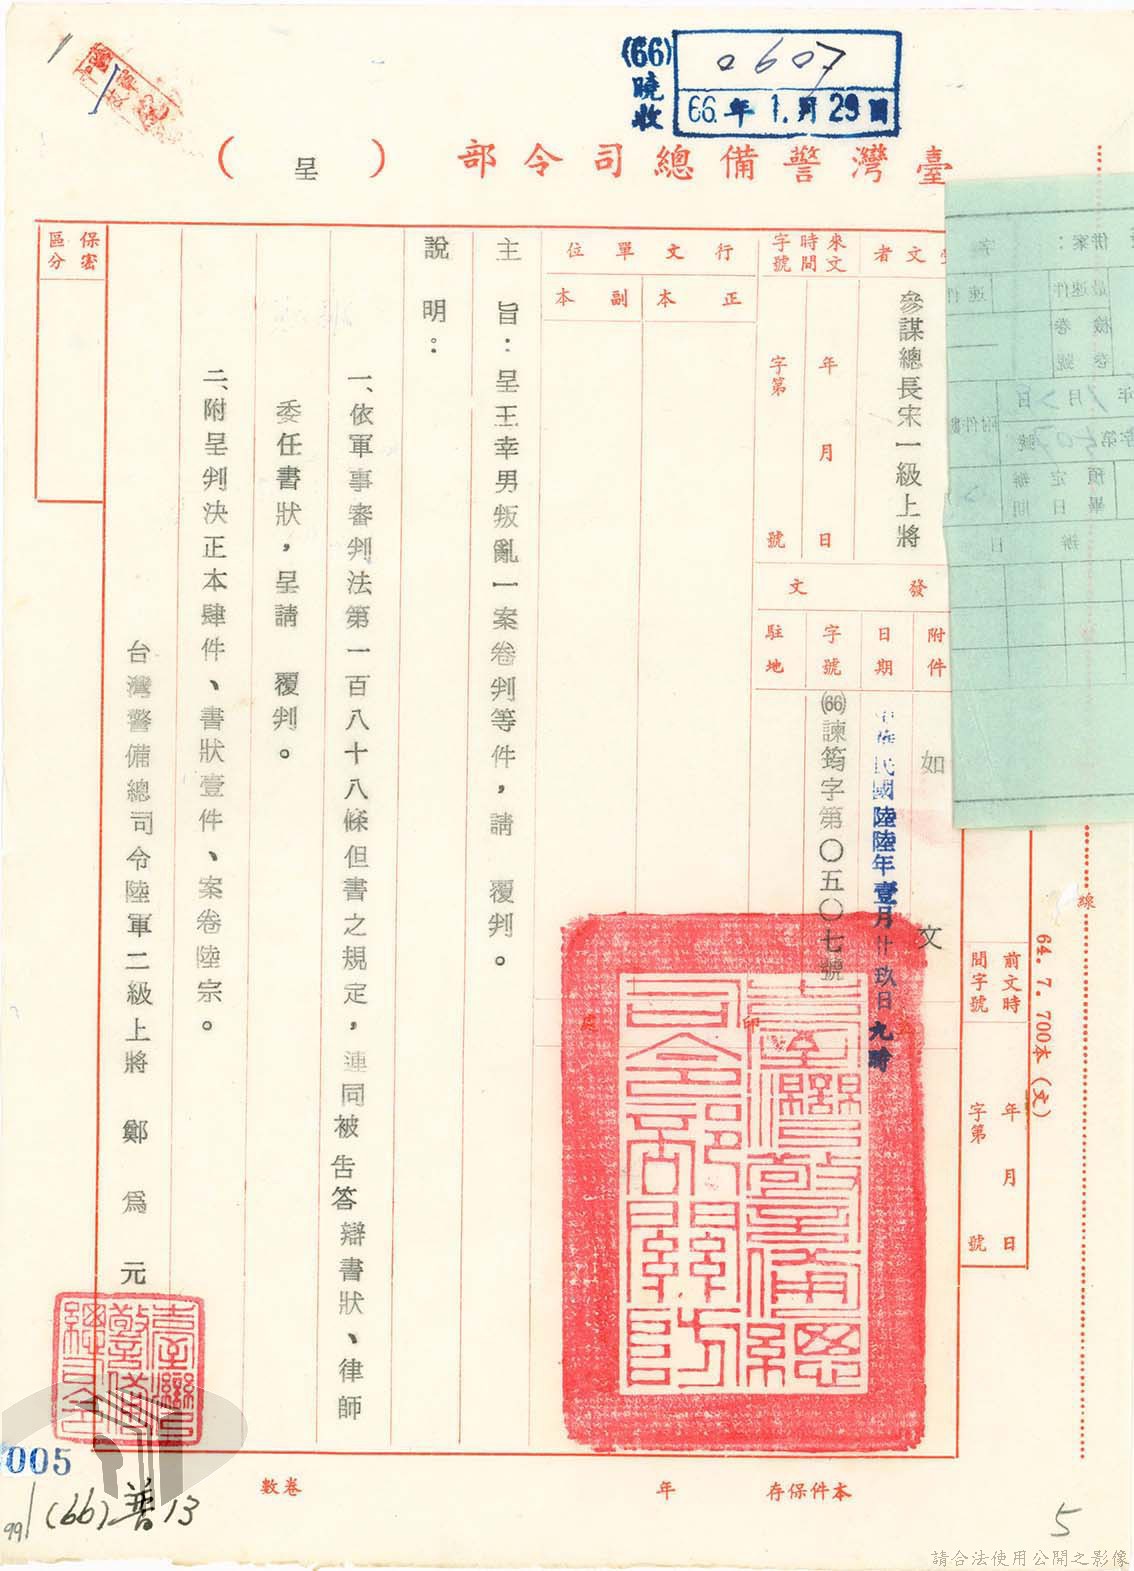 (66)
曉收
0607
66.年1.月29日
臺灣警備總司令部(呈)
受文者
參謀總長宋一級上將
來文時間字號
年月日
字第號
行文單位
正本
副本
保密區分
發文
附件
如文
日期
中華民國陸陸年壹月廿玖日九時
字號
(66)諫筠字第〇五〇七號
駐地
印
主旨：呈王幸男叛亂一案卷判等件，請 覆判。
說明：
一、依軍事審判法第一百八十八條但書之規定，連同被告答辯書狀、律師
委任書狀，呈請 覆判。
二、附呈判決正本肆件、書狀壹件、案卷陸宗。
台灣警備總司令陸軍二級上將 鄭為元
臺灣警備總司令部關防
臺灣警備總司令
線
64.7.700本(文)
前文時間字號
年月日
字第號
本件保存年
卷數
005
(66)普13
991
5
請合法使用公開之影像